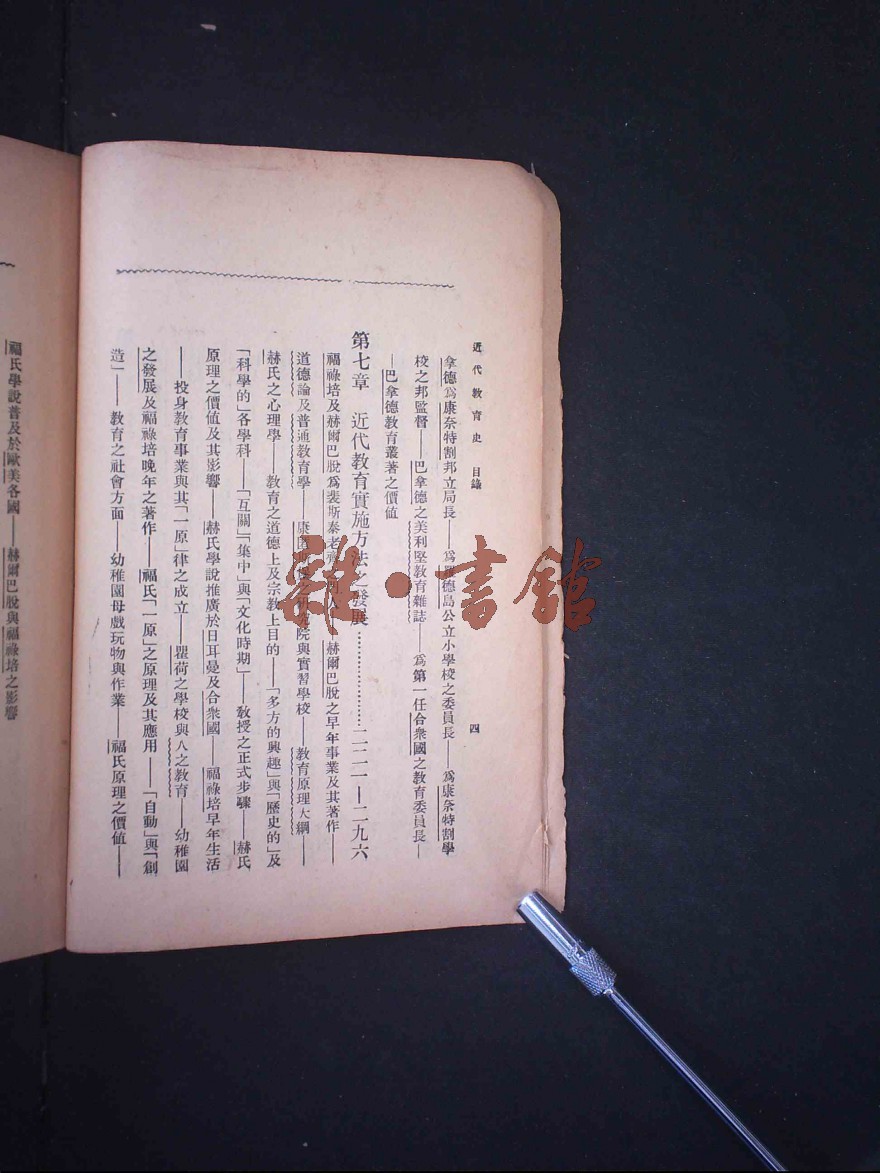 近代教育史 目錄 四
拿德爲康奈特割邦立局長——爲羅德島公立小學校之委員長——爲康奈特割學
校之邦監督——巴拿德之美利堅教育雜誌——爲第一任合衆國之教育委員長—
—巴拿德教育叢著之價值
第七章 近代教育實施方法之發展…………………二二一—二九六
福祿培及赫爾巴脫爲裴斯泰老 赫爾巴脫之早年事業及其著作——
道德論及普通教育學——康 院與實習學校——教育原理大綱——
赫氏之心理學——教育之道德上及宗教上目的——「多方的興趣」與「歷史的」及
「科學的」各學科——「互關」「集中」與「文化時期」——教授之正式步驟——赫氏
原理之價值及其影響——赫氏學說推廣於日耳曼及合衆國——福祿培早年生活
——投身教育事業與其「一原」律之成立——瞿荷之學校與人之教育——幼稚園
之發展及福祿培晚年之著作——福氏「一原」之原理及其應用——「自動」與「創
造」——教育之社會方面——幼稚園母戲玩物與作業——福氏原理之價值——
福氏學說普及於歐美各國——赫爾巴脫與福祿培之影響
雜·書館